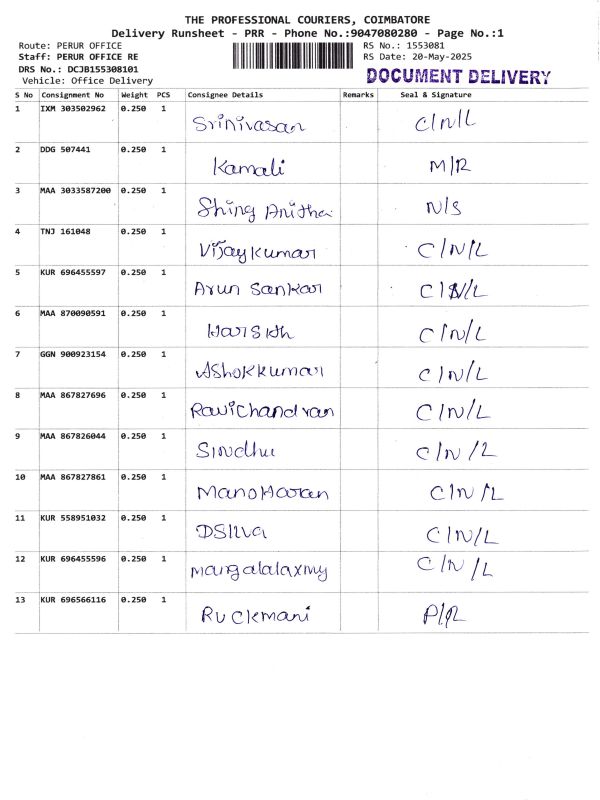 THE PROFESSIONAL COURIERS, COIMBATORE
Delivery Runsheet - PRR - Phone No.:9047080280 - Page No.:1
Route: PERUR OFFICE RS No.: 1553081
Staff: PERUR OFFICE RE RS Date: 20-May-2025
DRS No.: DCJB155308101
Vehicle: Office Delivery DOCUMENT DELIVERY
S No Consignment No Weight PCS Consignee Details Remarks Seal & Signature
1 IXM 303502962 0.250 1 Srinivasan C/N/L
2 DDG 507441 0.250 1 Kamali M/R
3 MAA 3033587200 0.250 1 Shing Anitha N/S
4 TNJ 161048 0.250 1 Vijaykumar C/N/L
5 KUR 696455597 0.250 1 Arun Sankar C/N/L
6 MAA 870090591 0.250 1 Harsith C/N/L
7 GGN 900923154 0.250 1 Ashokkumar C/N/L
8 MAA 867827696 0.250 1 Ravichandran C/N/L
9 MAA 867826044 0.250 1 Sindhu C/N/L
10 MAA 867827861 0.250 1 Manoharan C/N/L
11 KUR 558951032 0.250 1 DSilva C/N/L
12 KUR 696455596 0.250 1 Mangalalaxmy C/N/L
13 KUR 696566116 0.250 1 Ruckmani P/R